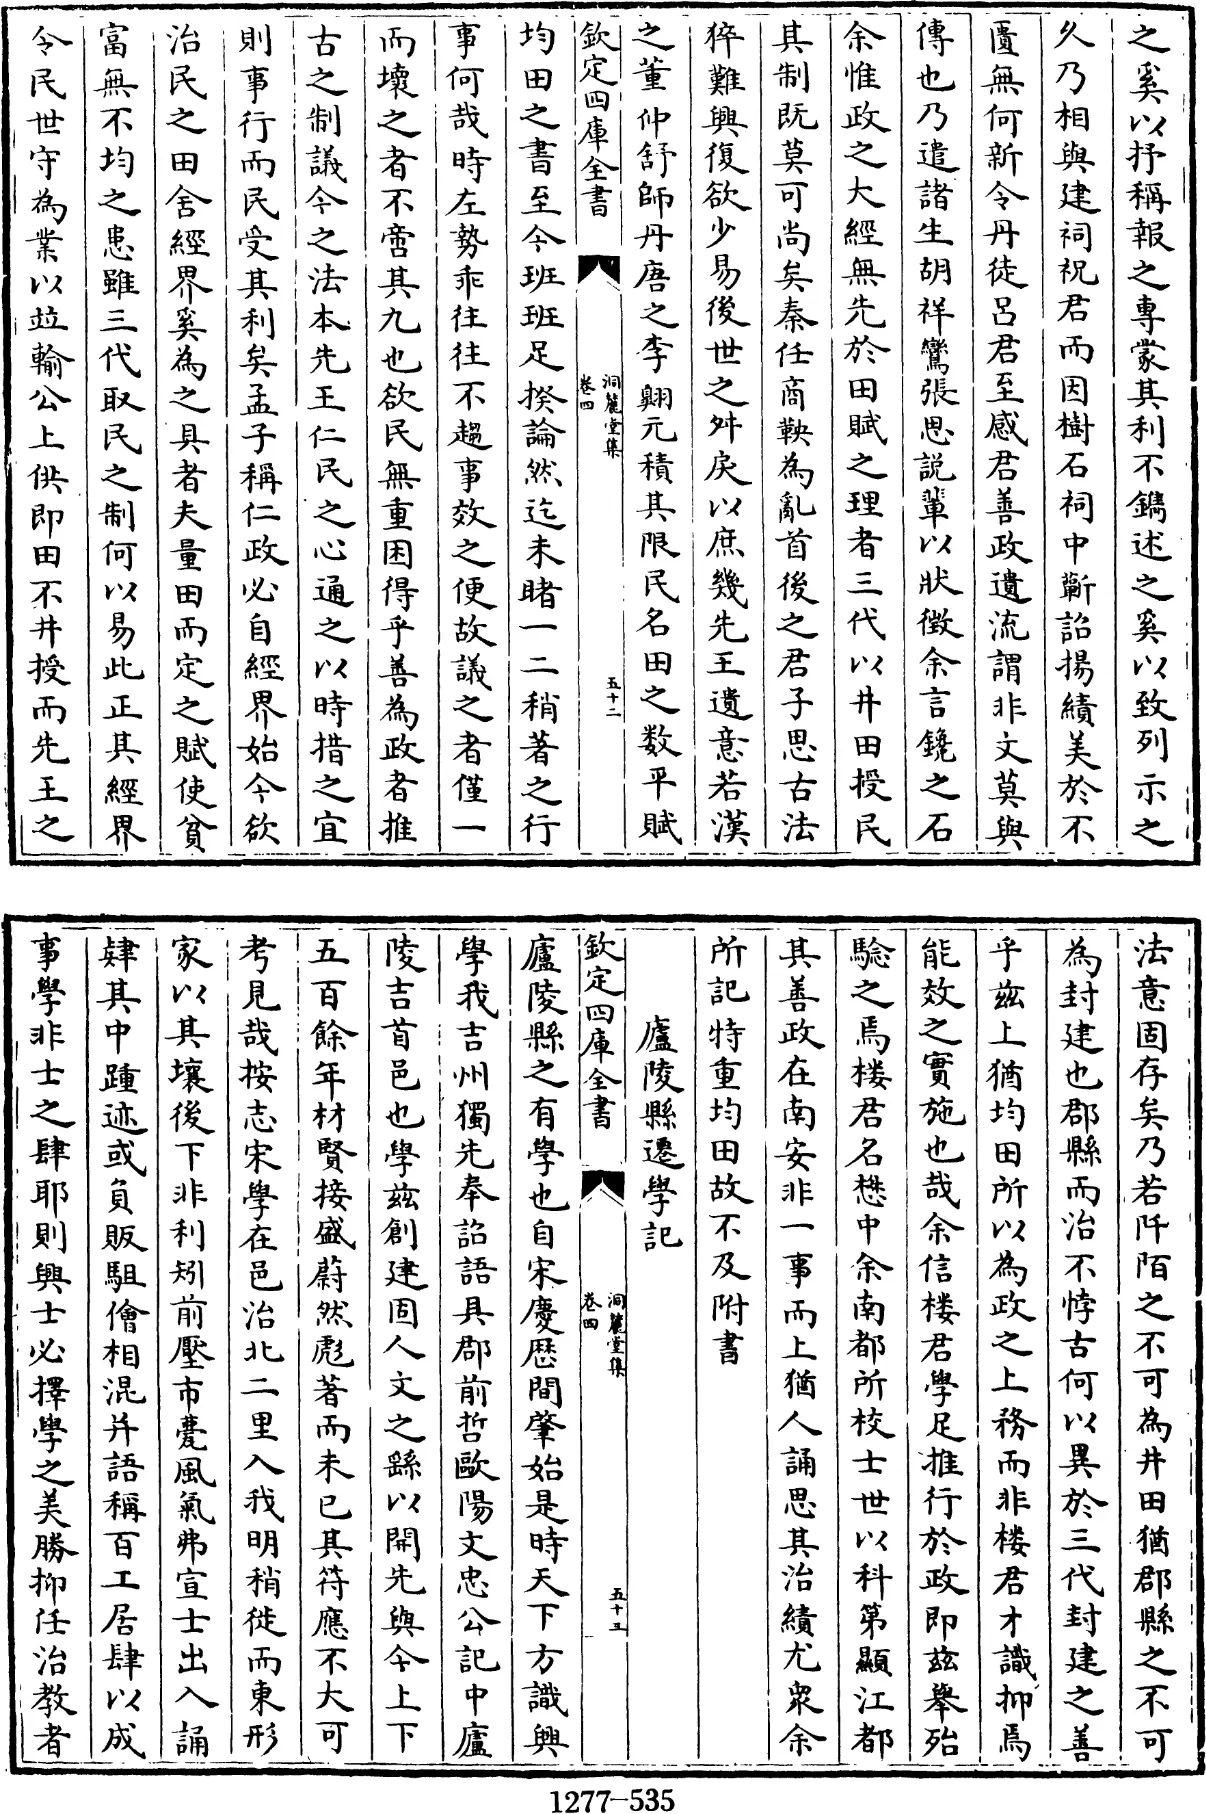 之奚以抒稱報之專蒙其利不鐫述之奚以致列示之
久乃相與建祠祝君而因樹石祠中蘄詔揚績美於不
匱無何新令丹徒呂君至感君善政遺流謂非文莫與
傳也乃遣諸生胡祥鸞張思說輩以狀徵余言鑱之石
余惟政之大經無先於田賦之理者三代以井田授民
其制既莫可尚矣秦任商鞅為亂首後之君子思古法
猝難興復欲少易後世之舛戾以庶幾先王遺意若漢
之董仲舒師丹唐之李翺元積其限民名田之数平賦
欽定四庫全書
洞麓堂集
卷四
五十二
均田之書至今班班足揆論然迄未睹一二稍著之行
事何哉時左勢乖往往不趨事效之便故議之者僅一
而壞之者不啻其九也欲民無重困得乎善為政者推
古之制議今之法本先王仁民之心通之以時措之宜
則事行而民受其利矣孟子稱仁政必自經界始今欲
治民之田舍經界奚為之具者夫量田而定之賦使貧
富無不均之患雖三代取民之制何以易此正其經界
令民世守為業以竝輸公上供即田不井授而先王之
法意固存矣乃若阡陌之不可為井田猶郡縣之不可
為封建也郡縣而治不悖古何以異於三代封建之善
乎兹上猶均田所以為政之上務而非楼君才識抑焉
能效之實施也哉余信楼君學足推行於政即兹舉殆
驗之焉楼君名懋中余南都所校士世以科第顯江都
其善政在南安非一事而上猶人誦思其治績尤衆余
所記特重均田故不及附書
廬陵縣遷學記
欽定四庫全書
洞麓堂集
卷四
五十三
廬陵縣之有學也自宋慶歷間肇始是時天下方識興
學我吉州獨先奉詔語具郡前哲歐陽文忠公記中廬
陵吉首邑也學兹創建固人文之繇以開先與今上下
五百餘年材賢接盛蔚然彪著而未已其符應不大可
考見哉按志宋學在邑治北二里入我明稍徙而東形
家以其壤後下非利矧前壓市甍風氣弗宣士出入誦
肄其中踵迹或負販駔儈相混并語稱百工居肆以成
事學非士之肆耶則興士必擇學之美勝抑任治教者
1277-535